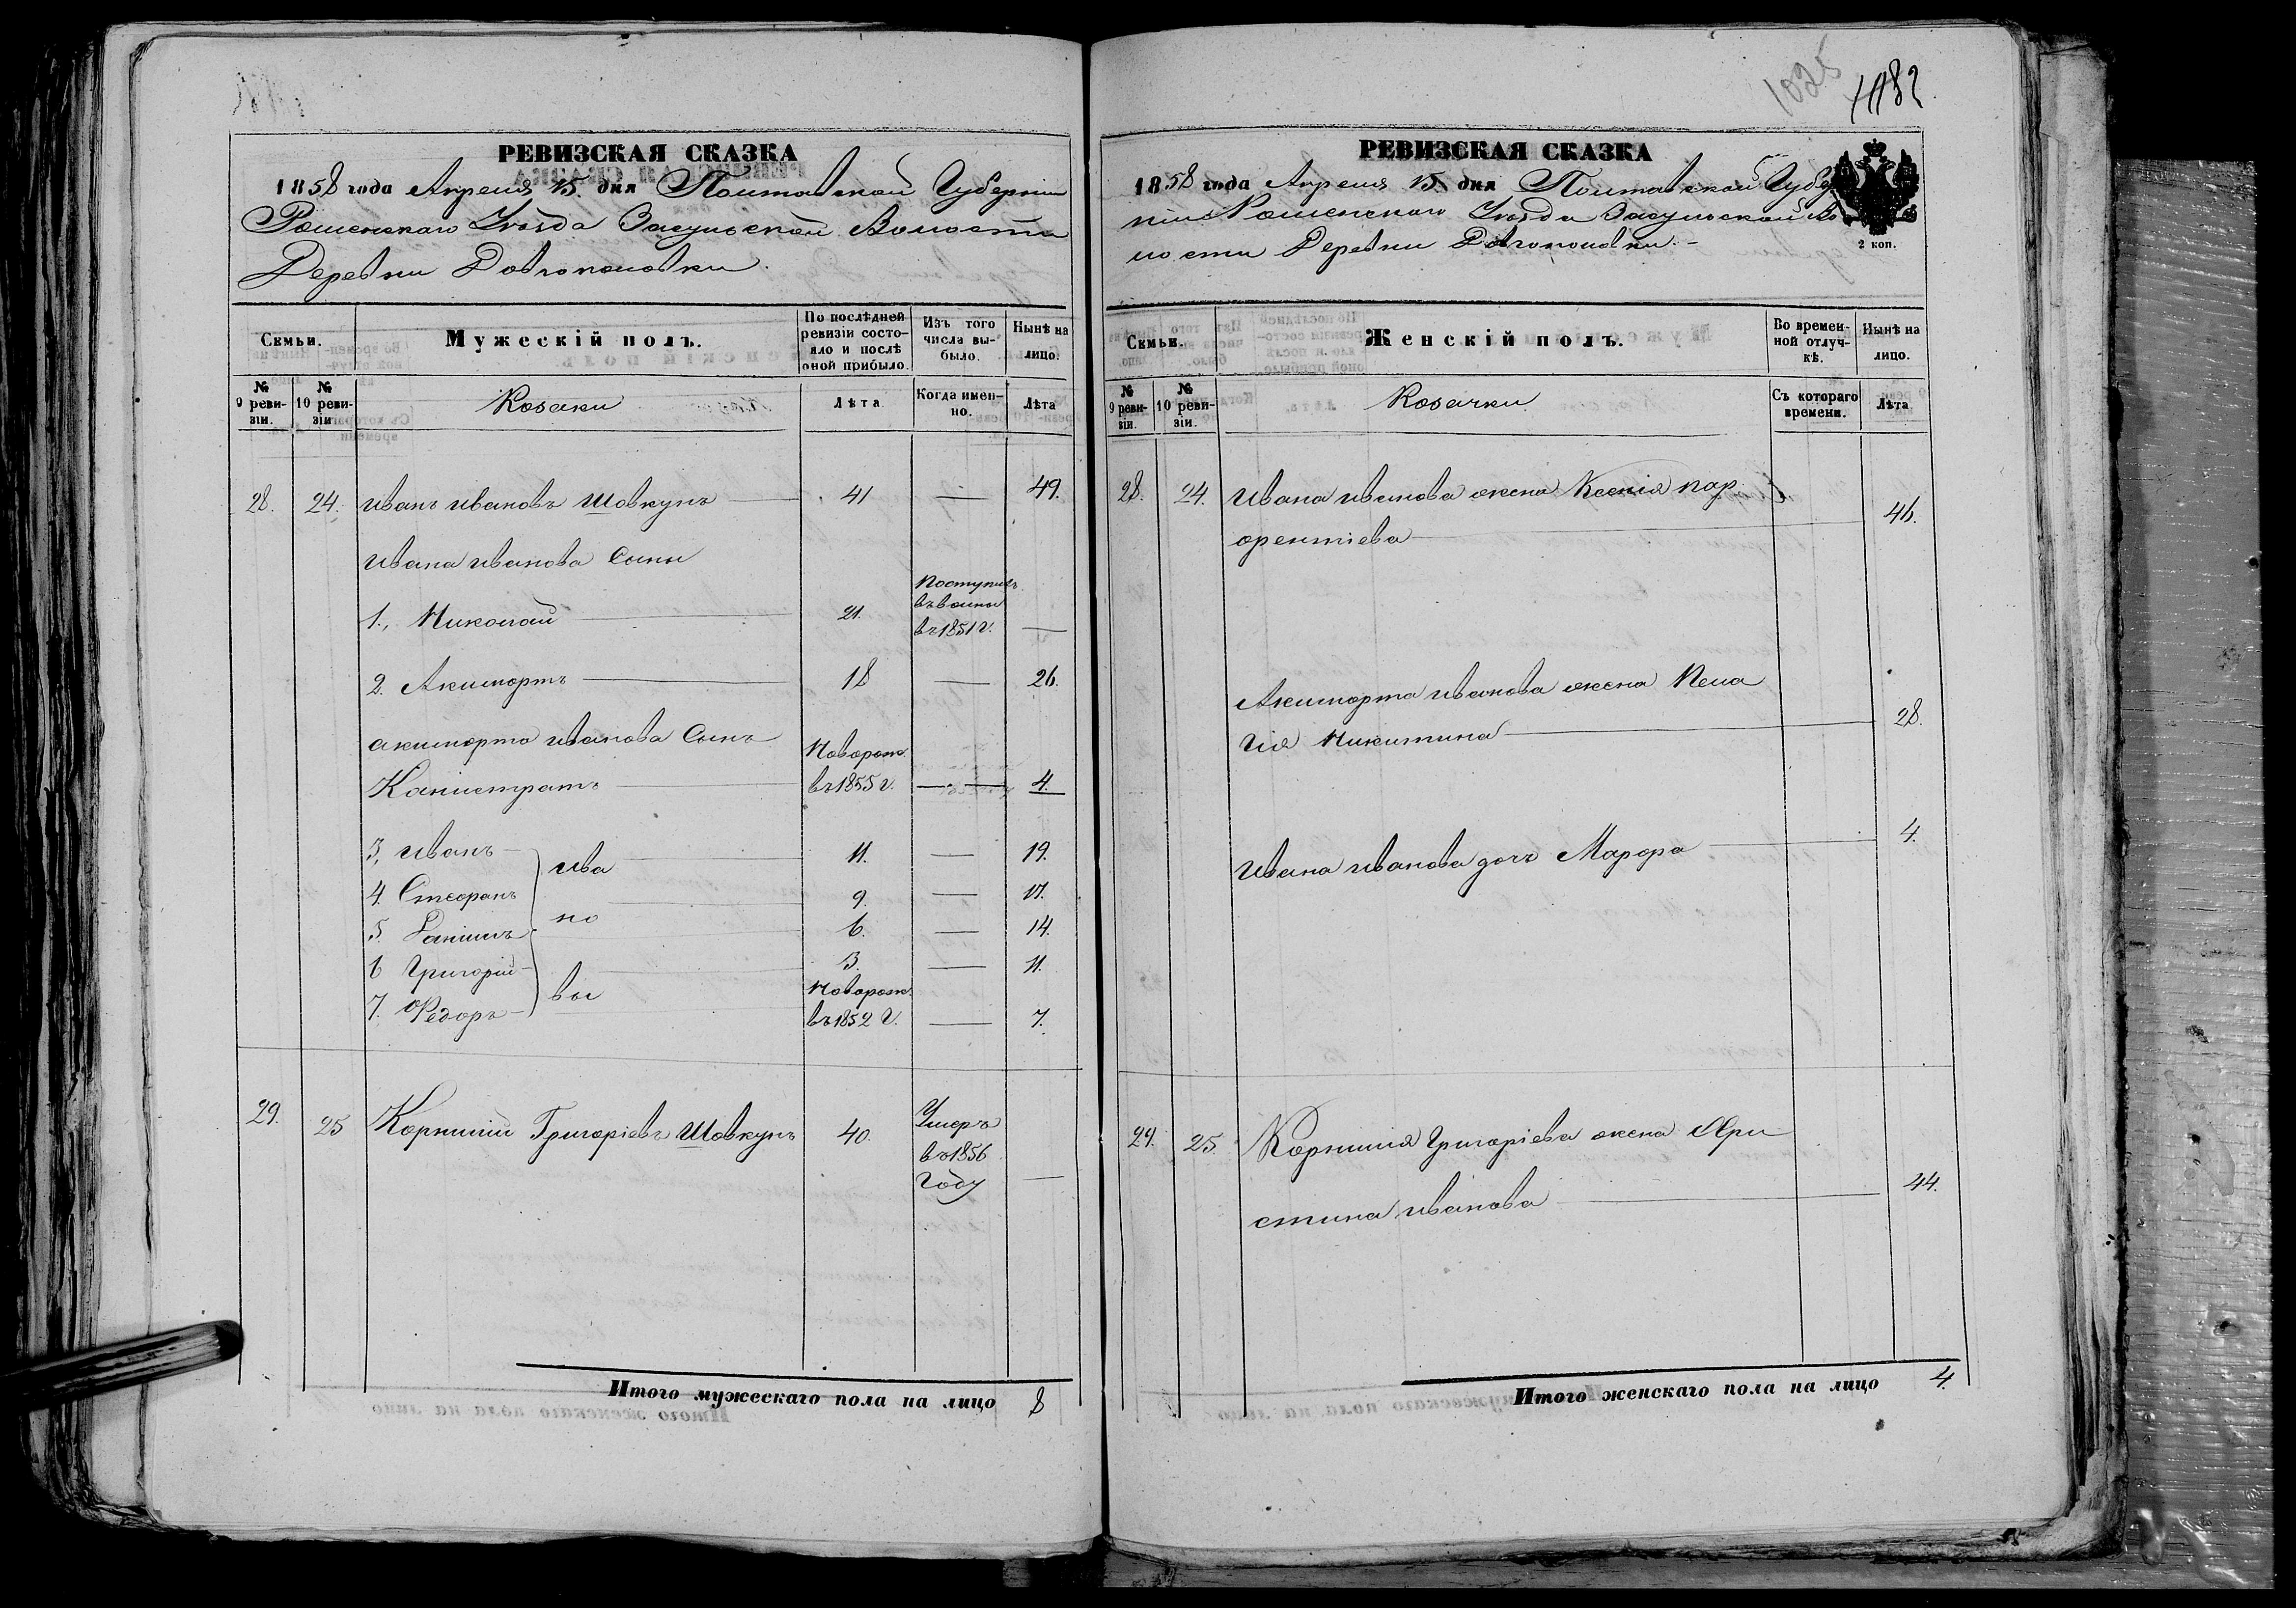 РЕВИЗСКАЯ СКАЗКА
1858 года Апреля 15 дня Полтавской Губерніи
Роменскаго Уѣзда Засульской Волости
Деревни Довгополовки.
Семьи.
Мужескій полъ.
По послѣдней ревизіи состояло и послѣ оной прибыло.
Изъ того числа выбыло.
Нынѣ на лицо.
№ 9 ревизіи.
№ 10 ревизіи.
Козаки
Лѣта
Когда именно.
Лѣта
28. 24. Иванъ Ивановъ Шовкунъ 41 — 49.
Ивана Иванова Сыны
1., Николай 21. Поступилъ въ воины въ 1851 г. —
2. Акилюртъ 18 — 26.
Иванова Сынъ
Новорож.
Каліистратъ въ 1855 г. — 4.
3, Иванъ 11. — 19.
4. Стефанъ 9. — 17.
5. Даніилъ 6. — 14.
6 Григорій 3. — 11.
7. Федоръ Новорож. въ 1852 г. — 7.
Ива
но
вы
29. 25 Корнилій Григоріевъ Шовкунъ 40. Умеръ въ 1856 году —
Итого мужескаго пола на лицо 8
1025
1182
РЕВИЗСКАЯ СКАЗКА
1858 года Апреля 15 дня Полтавской Губер
ніи Роменскаго Уѣзда Засульской Во
лости Деревни Довгополовки.
2 коп.
Семьи.
Женскій полъ.
Во временной отлучкѣ.
Нынѣ на лицо.
№ 9 ревизіи.
№ 10 ревизіи.
Козачки
Съ котораго времени.
Лѣта
28. 24. Ивана Иванова жена Ксенія Лар
ентіева 46.
Иванова жена Пела
гія Никитина 28.
Ивана Иванова дочь Марфа 4.
29. 25. Корнилія Григоріева жена Хри
стина Иванова 44.
Итого женскаго пола на лицо 4.